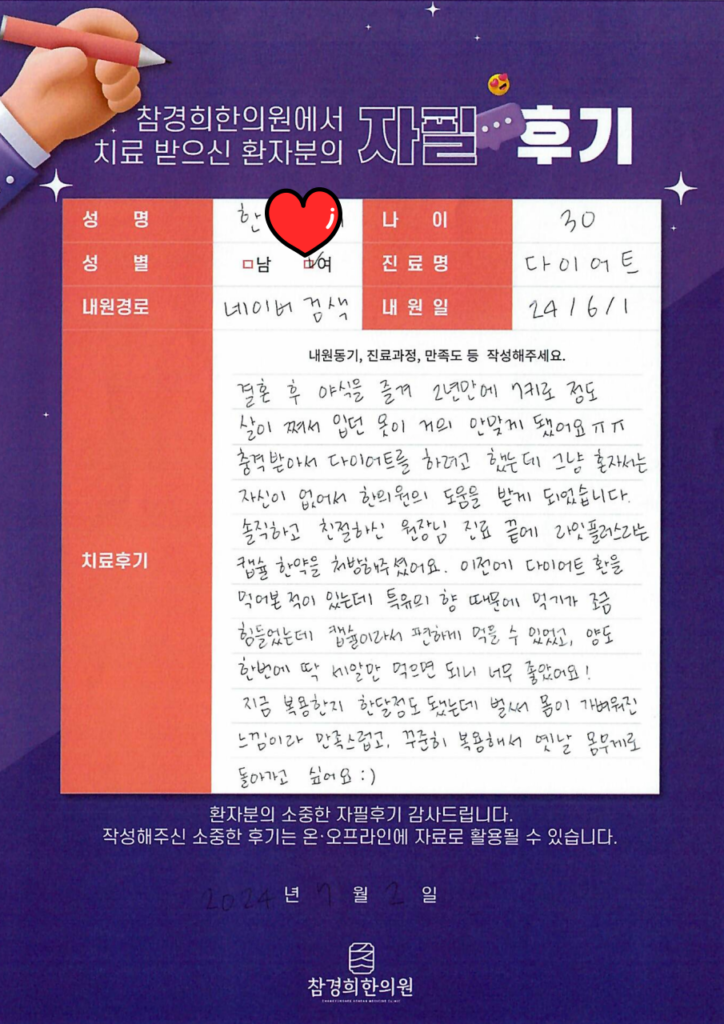 참경희한의원에서
치료 받으신 환자분의 자필 후기
성 명 한 나 이 30
성 별 □남 □여 진 료 명 다이어트
내원경로 네이버 검색 내 원 일 24/6/1
내원동기, 진료과정, 만족도 등 작성해주세요.
치료후기
결혼 후 야식을 즐겨 2년만에 7키로 정도
살이 쪄서 입던 옷이 거의 안맞게 됐어요ㅠㅠ
충격받아서 다이어트를 하려고 했는데 그냥 혼자서는
자신이 없어서 한의원의 도움을 받게 되었습니다.
솔직하고 친절하신 원장님 진료 끝에 라잇플러스라는
캡슐 한약을 처방해주셨어요. 이전에 다이어트 환을
먹어본 적이 있는데 특유의 향 때문에 먹기가 조금
힘들었는데 캡슐이라서 편하게 먹을 수 있었고, 양도
한번에 딱 세알만 먹으면 되니 너무 좋았어요!
지금 복용한지 한달정도 됐는데 벌써 몸이 가벼워진
느낌이라 만족스럽고, 꾸준히 복용해서 옛날 몸무게로
돌아가고 싶어요 :)
환자분의 소중한 자필후기 감사드립니다.
작성해주신 소중한 후기는 온·오프라인에 자료로 활용될 수 있습니다.
2024 년 7 월 2 일
참경희한의원